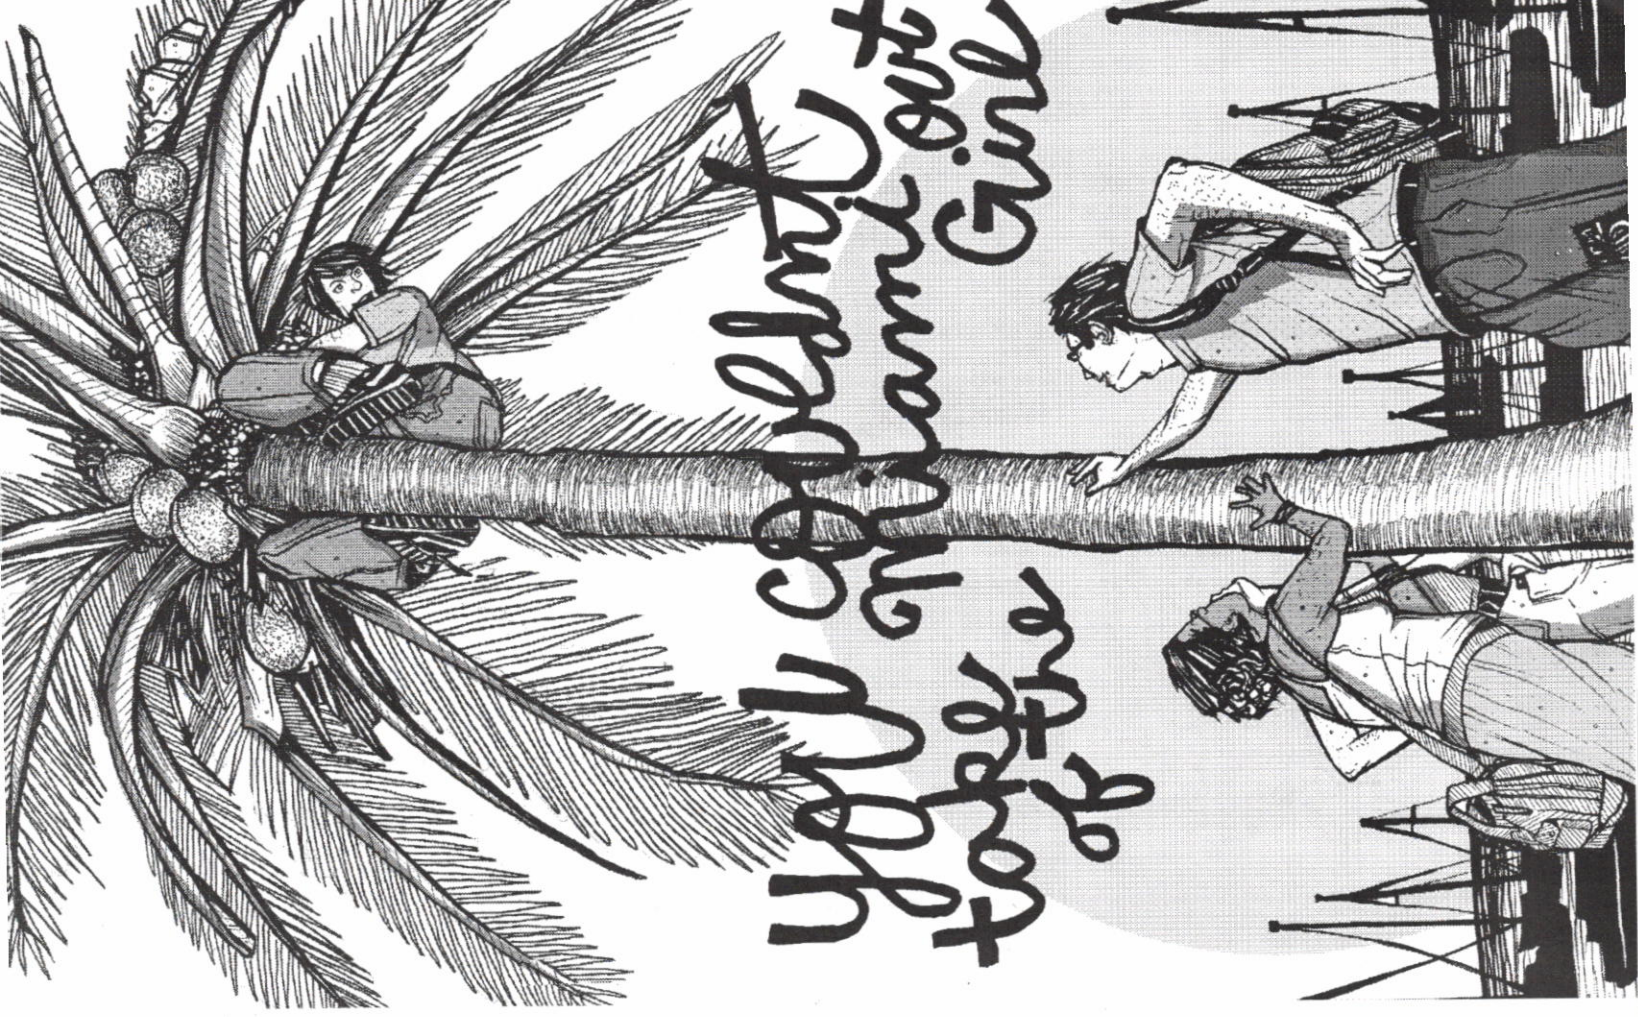 you couldnt
take Miami out
of the Girl